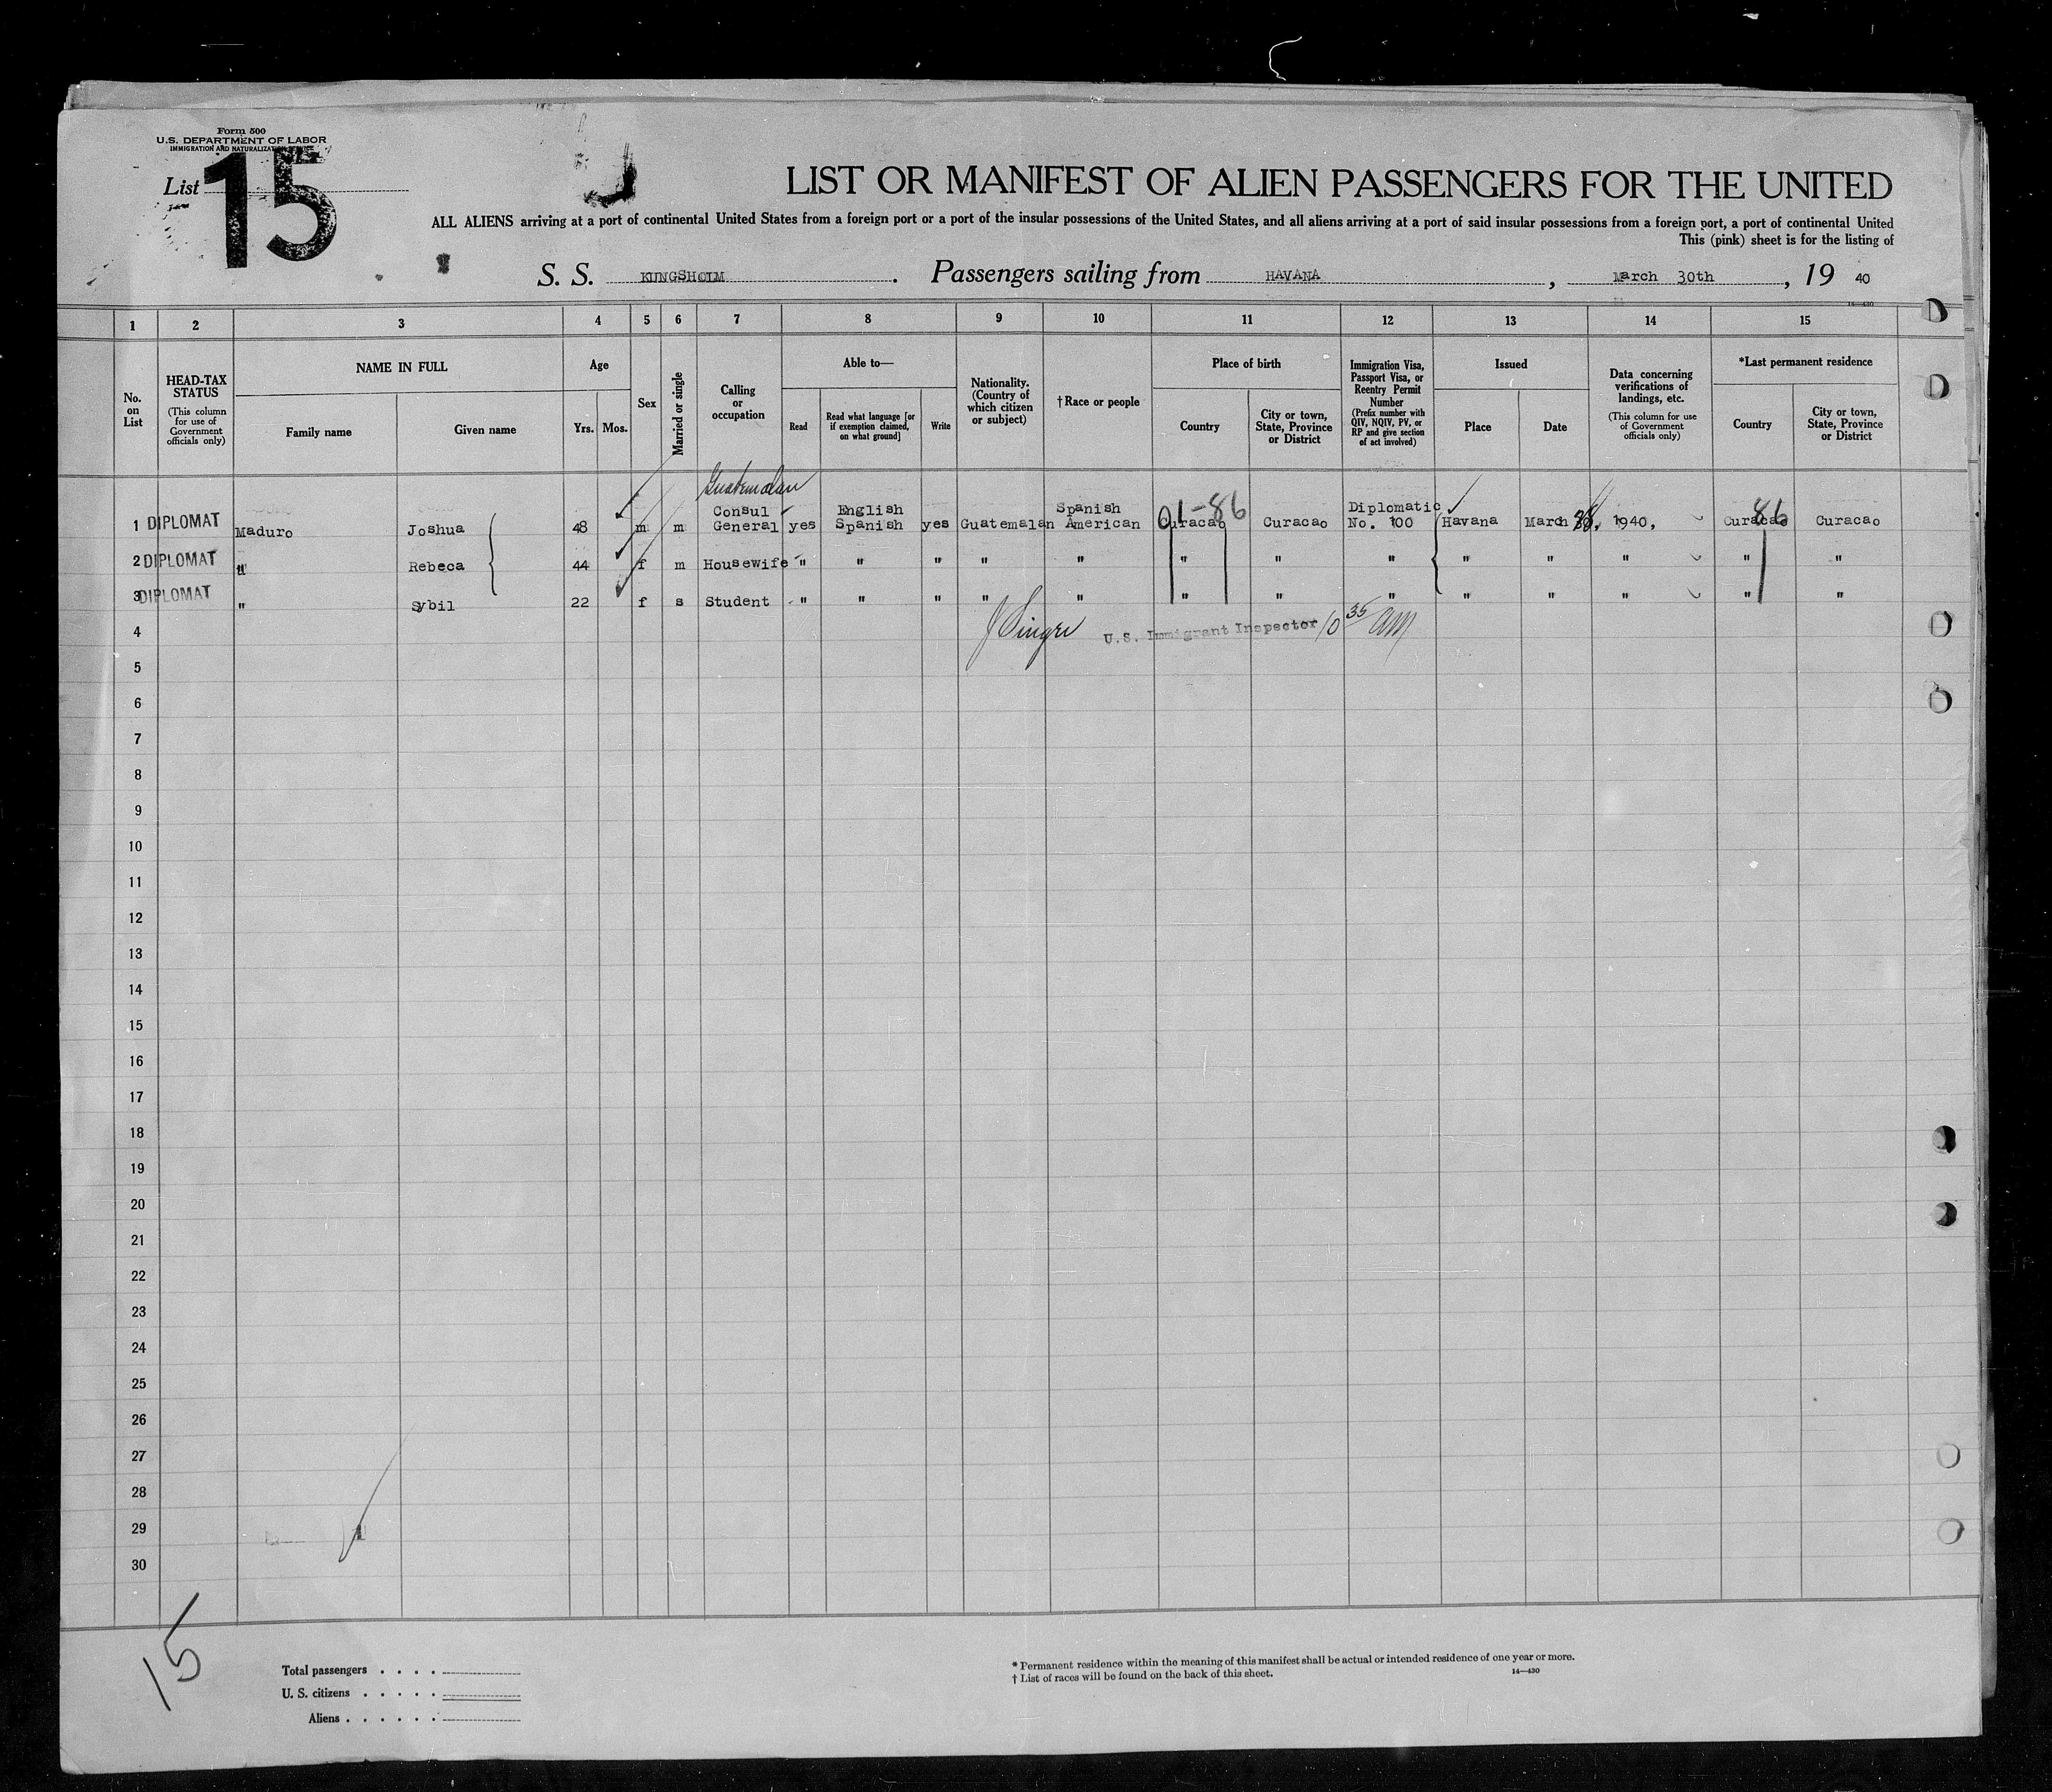 Form 500
U.S. DEPARTMENT OF LABOR
IMMIGRATION AND NATURALIZATION SERVICE
List 15
LIST OR MANIFEST OF ALIEN PASSENGERS FOR THE UNITED
ALL ALIENS arriving at a port of continental United States from a foreign port or a port of the insular possessions of the United States, and all aliens arriving at a port of said insular possessions from a foreign port, a port of continental United
This (pink) sheet is for the listing of
S. S. KUNGSHOLM. Passengers sailing from HAVANA, March 30th, 19 40
14—430
1 2 3 4 5 6 7 8 9 10 11 12 13 14 15
No. on List
HEAD-TAX STATUS (This column for use of Government officials only)
NAME IN FULL
Family name Given name
Age
Yrs. Mos.
Sex
Married or single
Calling or occupation
Able to—
Read Read what language [or if exemption claimed, on what ground] Write
Nationality. (Country of which citizen or subject)
†Race or people
Place of birth
Country City or town, State, Province or District
Immigration Visa, Passport Visa, or Reentry Permit Number (Prefix number with QIV, NQIV, PV, or RP and give section of act involved)
Issued
Place Date
Data concerning verifications of landings, etc. (This column for use of Government officials only)
*Last permanent residence
Country City or town, State, Province or District
Guatemalan
1 DIPLOMAT Maduro Joshua 48 m m Consul General yes English Spanish yes Guatemalan Spanish American Curacao 01-86 Curacao Diplomatic No. 100 Havana March 28, 1940, Curacao 86 Curacao
2 DIPLOMAT " Rebeca 44 f m Housewife " " " " " " " " " " " " "
3 DIPLOMAT " Sybil 22 f s Student " " " " " " " " " " " " "
4 U.S. Immigrant Inspector 10 35 AM
5
6
7
8
9
10
11
12
13
14
15
16
17
18
19
20
21
22
23
24
25
26
27
28
29
30
15
Total passengers . . . .
U. S. citizens . . . . .
Aliens . . . . . .
* Permanent residence within the meaning of this manifest shall be actual or intended residence of one year or more.
† List of races will be found on the back of this sheet.
14—430